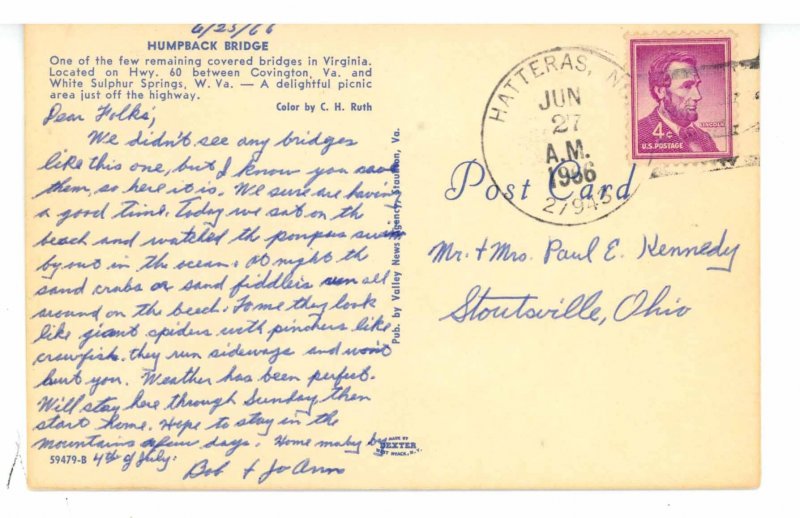 6/25/66
HUMPBACK BRIDGE
One of the few remaining covered bridges in Virginia.
Located on Hwy. 60 between Covington, Va. and
White Sulphur Springs, W. Va. — A delightful picnic
area just off the highway.
Color by C. H. Ruth
Dear Folks;
We didn't see any bridges
like this one, but I know you saw
them, so here it is. We sure are having
a good time. Today we sat on the
beach and watched the porpus swim
by out in the ocean. At night the
sand crabs or sand fiddlers run all
around on the beach. To me they look
like giant spiders with pinchers like
crawfish. they run sideways and won't
hurt you. Weather has been perfect.
Will stay here through Sunday then
start home. Hope to stay in the
mountains a few days. Home maby by
4th of July.
Bob + Jo Ann
59479-B
Pub. by Valley News Agency, Staunton, Va.
MADE BY
DEXTER
WEST NYACK, N.Y.
HATTERAS, N.C.
JUN
27
A.M.
1966
27943
LINCOLN
4¢
U.S. POSTAGE
Post Card
Mr. + Mrs. Paul E. Kennedy
Stoutsville, Ohio